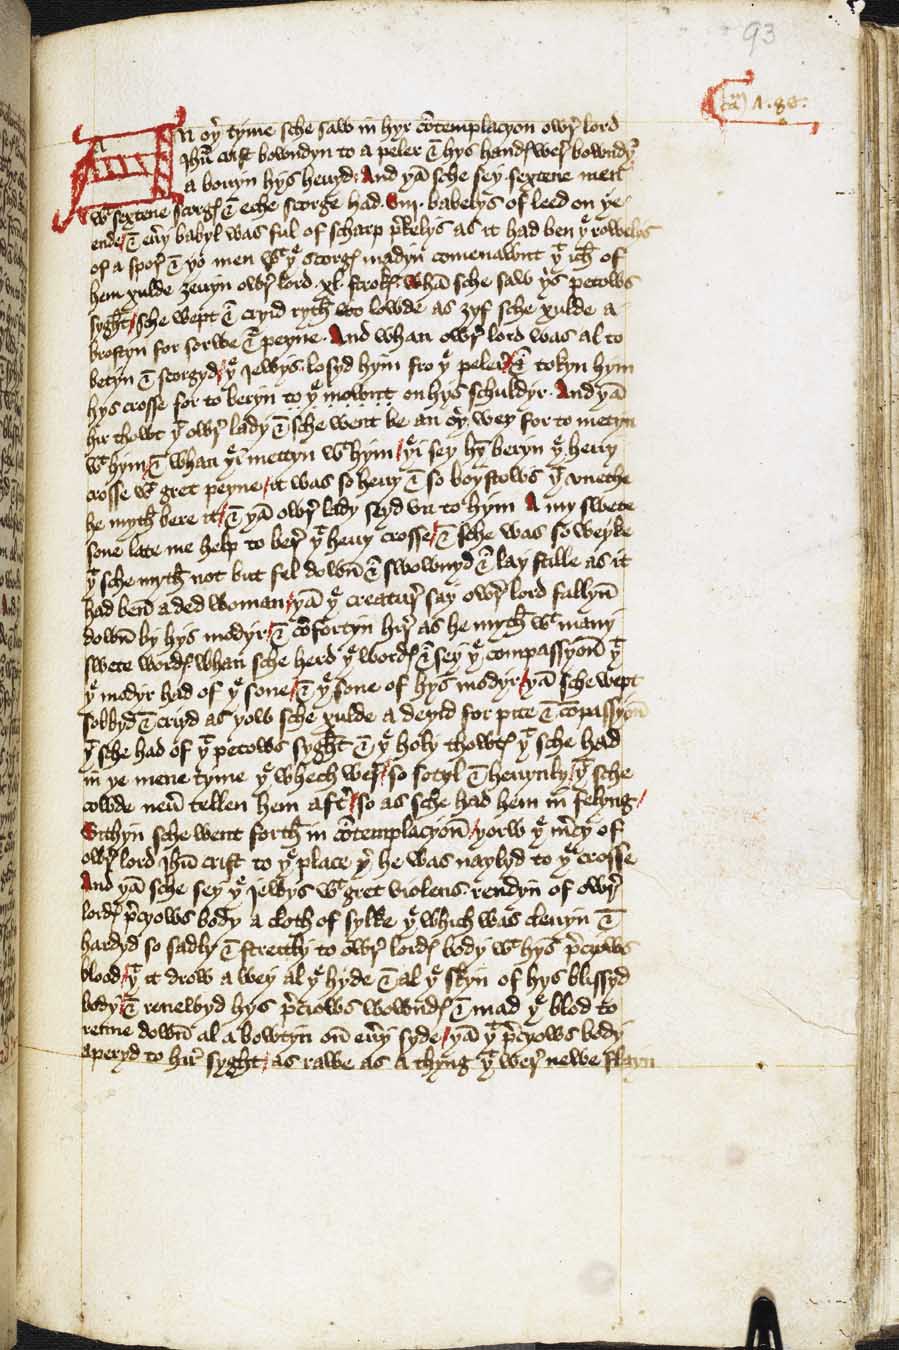 93
ca^m 1.80.
AN oþ^r tyme sche saw in hyr cōtemplacyon owr̛ lord
Ihū crist bowndyn to a peler & hys handꝭ wer̛ bowndȳ
a bouyn hys heuyd. And þā sche sey sextene men
w^t sextene scorgꝭ & eche scorge had .viij. babelys of leed on þe
ende / & eūy babyl was ful of scharp p^ikelys as it had ben þ^e rowelys
of a spor̛ & þo men w^t þ^e scorgꝭ madyn comenawnt þ^t ich of
hem xulde ȝeuyn owr̛ lord .xl. strokꝭ. Whā sche saw þ^is petows
syght / sche wept & cryid ryth lowde as ȝyf sche xulde a
brostyn for sorwe & peyne. And whan owr̛ lord was al to
betyn & scorgyd / þ^e Iewys losyd hym fro þ^e peler / & tokyn hym
hys crosse for to beryn to þ^e mownt on hys schuldyr. And þā
hir thowt þ^t owr̛ lady & sche went be an oþ^r wey for to metyn
w^t hym / & whan þ^ei mettyn w^t hym / þ^ei sey hȳ beryn þ^e heuy
crosse w^t gret peyne / it was so heuy & so boystows þ^t vnethe
he myth bere it / & þā owr̛ lady seyd vn to hym A my swete
sone late me help to ber̛ þ^t heuy crosse / & sche was so weyke
þ^t sche myth not but fel down & swownyd & lay stille as it
had ben a ded woman / þā þ^e creatur̛ say owr̛ lord fallyn
down by hys modyr / & cōfortyn hir̛ as he myth w^t many
swete wordꝭ whan sche herd þ^e wordꝭ & sey þ^e compassyon þ^t
þ^e modyr had of þ^e sone / & þ^e sone of hys modyr / þā sche wept
sobbyd & cryid as þow sche xulde a deyid for pite & cōpassyon
þ^t sche had of þ^t petows syght & þ^e holy thowtꝭ þ^t sche had
in þe mene tyme þ^e whech wer̛ / so sotyl & heuynly / þ^t sche
cowde neū tellen hem aftr̛ / so as sche had hem in felyng /
Sithyn sche went forth in cōtemplacyon / þorw þ^e m̄cy of
owr̛ lord Ihū crist to þ^e place þ^r he was naylyd to þ^e crosse
And þā sche sey þ^e Iewys w^t gret violens rendyn of owr̛
lordꝭ p̄cyows body a cloth of sylke þ^e which was cleuyn &
hardyd so sadly & streitly to owr̛ lordꝭ body w^t hys p̄cyows
blood / þ^t it drow a wey al þ^e hyde & al þ^e skyn of hys blissyd
body / & renewyd hys p̄cyows wowndꝭ & mad þ^e blod to
renne down al a bowtyn on eūy syde / þā þ^t p̄cyows body
aperyd to hir̛ syght / as rawe as a thyng þ^t wer̛ newe flayn